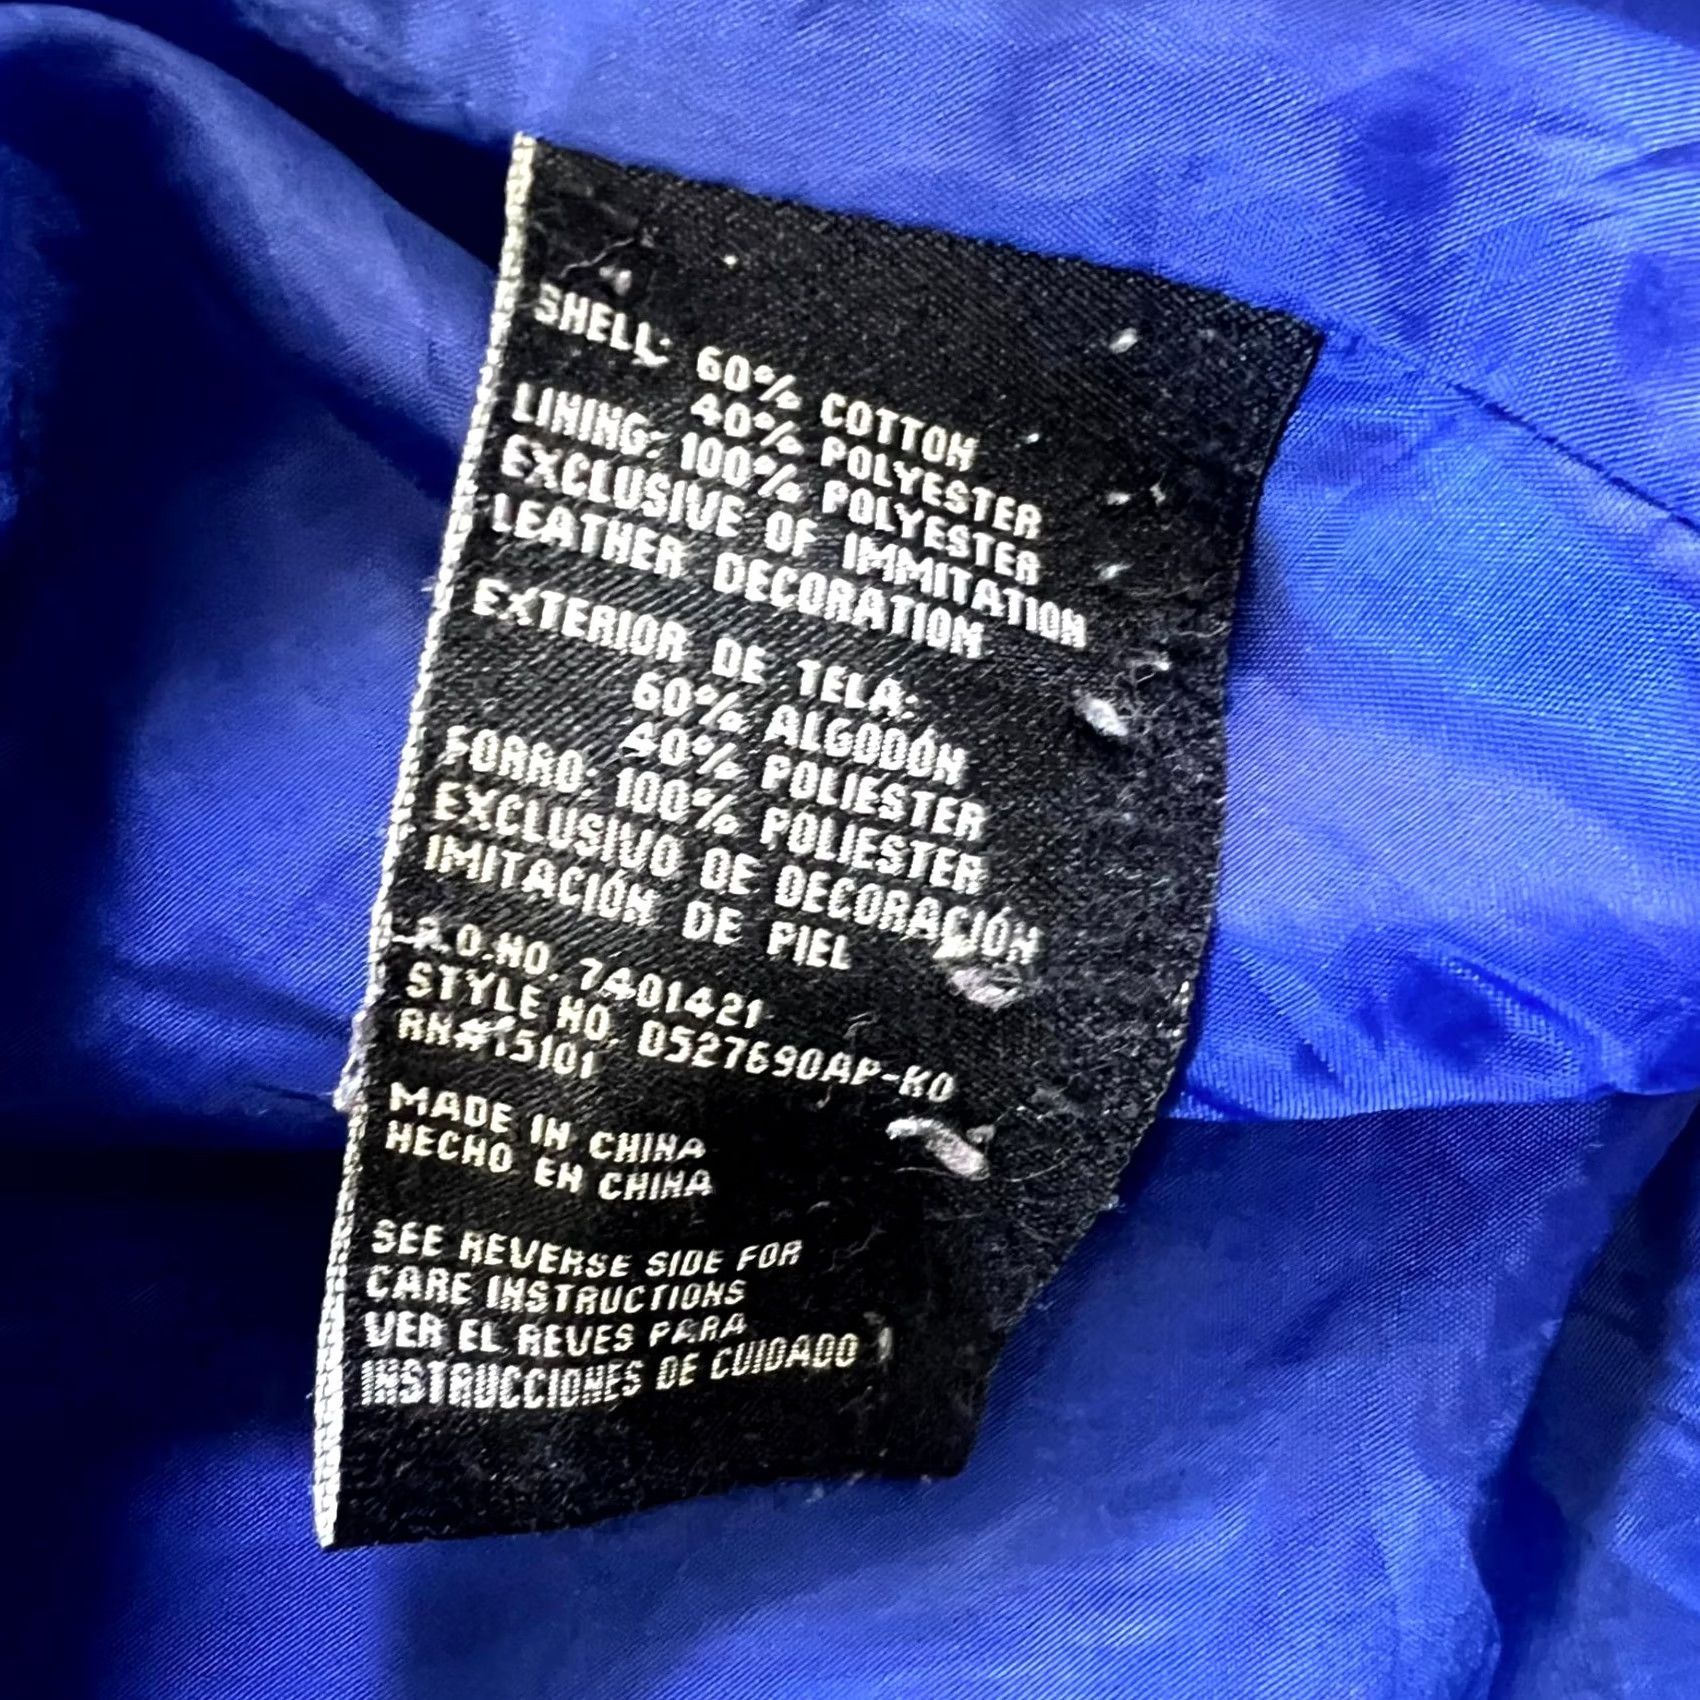 SHELL: 60% COTTON
40% POLYESTER
LINING: 100% POLYESTER
EXCLUSIVE OF IMMITATION
LEATHER DECORATION
EXTERIOR DE TELA:
60% ALGODÓN
40% POLIÉSTER
FORRO: 100% POLIÉSTER
EXCLUSIVO DE DECORACIÓN
IMITACIÓN DE PIEL
P.O.NO. 7401421
STYLE NO. D527690AP-KO
RN#15101
MADE IN CHINA
HECHO EN CHINA
SEE REVERSE SIDE FOR
CARE INSTRUCTIONS
VER EL REVES PARA
INSTRUCCIONES DE CUIDADO